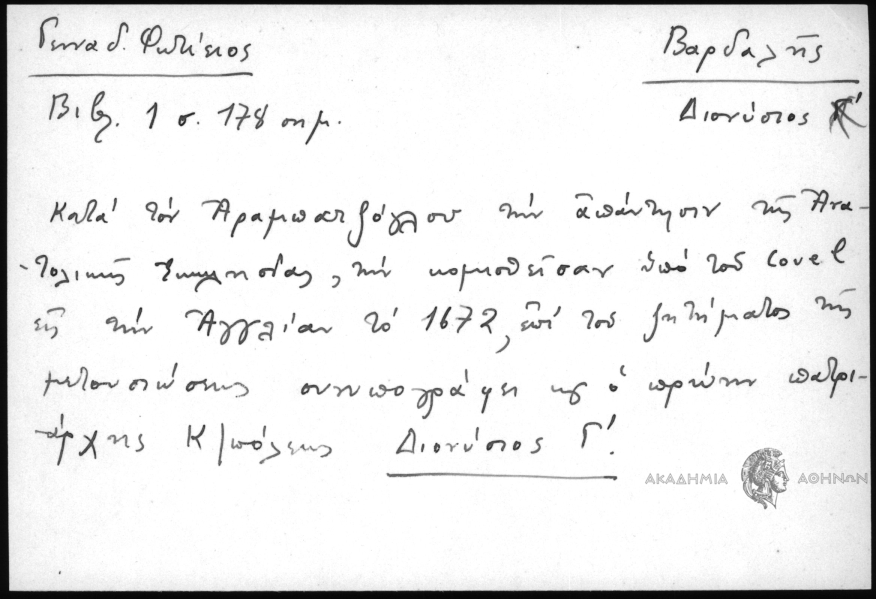 Γενναδ. Φωτίειος
Βαρδαλῆς
Βιβλ. 1 σ. 178 σημ.
Διονύσιος Γ'
Κατά τόν Ἀραμπατζόγλου τήν ἀπάντησιν τῆς Ἀνα-
τολικῆς Ἐκκλησίας, τήν κομισθεῖσαν ὑπό τοῦ Covel
εἰς τήν Ἀγγλίαν τό 1672, ἐπί τοῦ ζητήματος τῆς
μετουσιώσεως συνυπογράφει καί ὁ πρώην πατρι-
άρχης Κ/πόλεως Διονύσιος Γ'.
ΑΚΑΔΗΜΙΑ ΑΘΗΝΩΝ